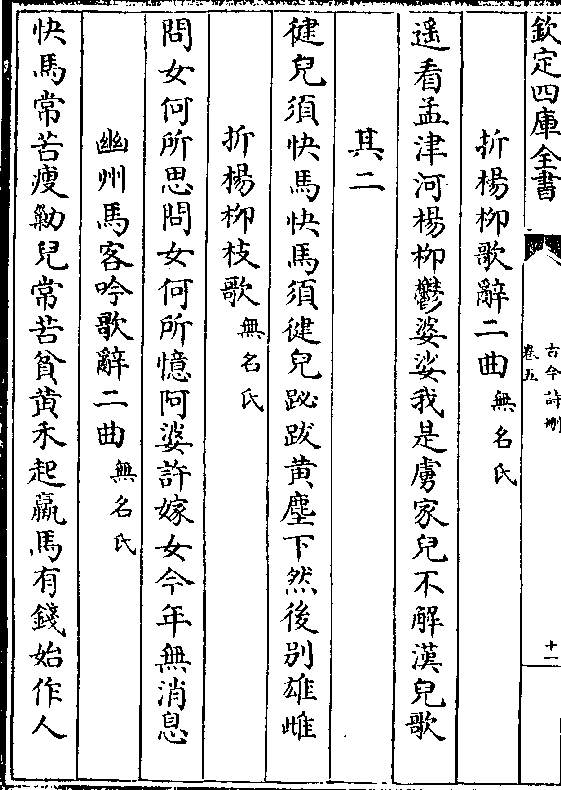 欽定四庫全書
古今詩刪
卷五
十一
折楊柳歌辭二曲無名氏
遥看孟津河楊柳鬱婆娑我是虜家兒不解漢兒歌
其二
健兒須快馬快馬須健兒䟆跋黄塵下然後别雄雌
折楊柳枝歌無名氏
問女何所思問女何所憶阿婆許嫁女今年無消息
幽州馬客吟歌辭二曲無名氏
快馬常苦瘦勦兒常苦貧黄禾起羸馬有錢始作人